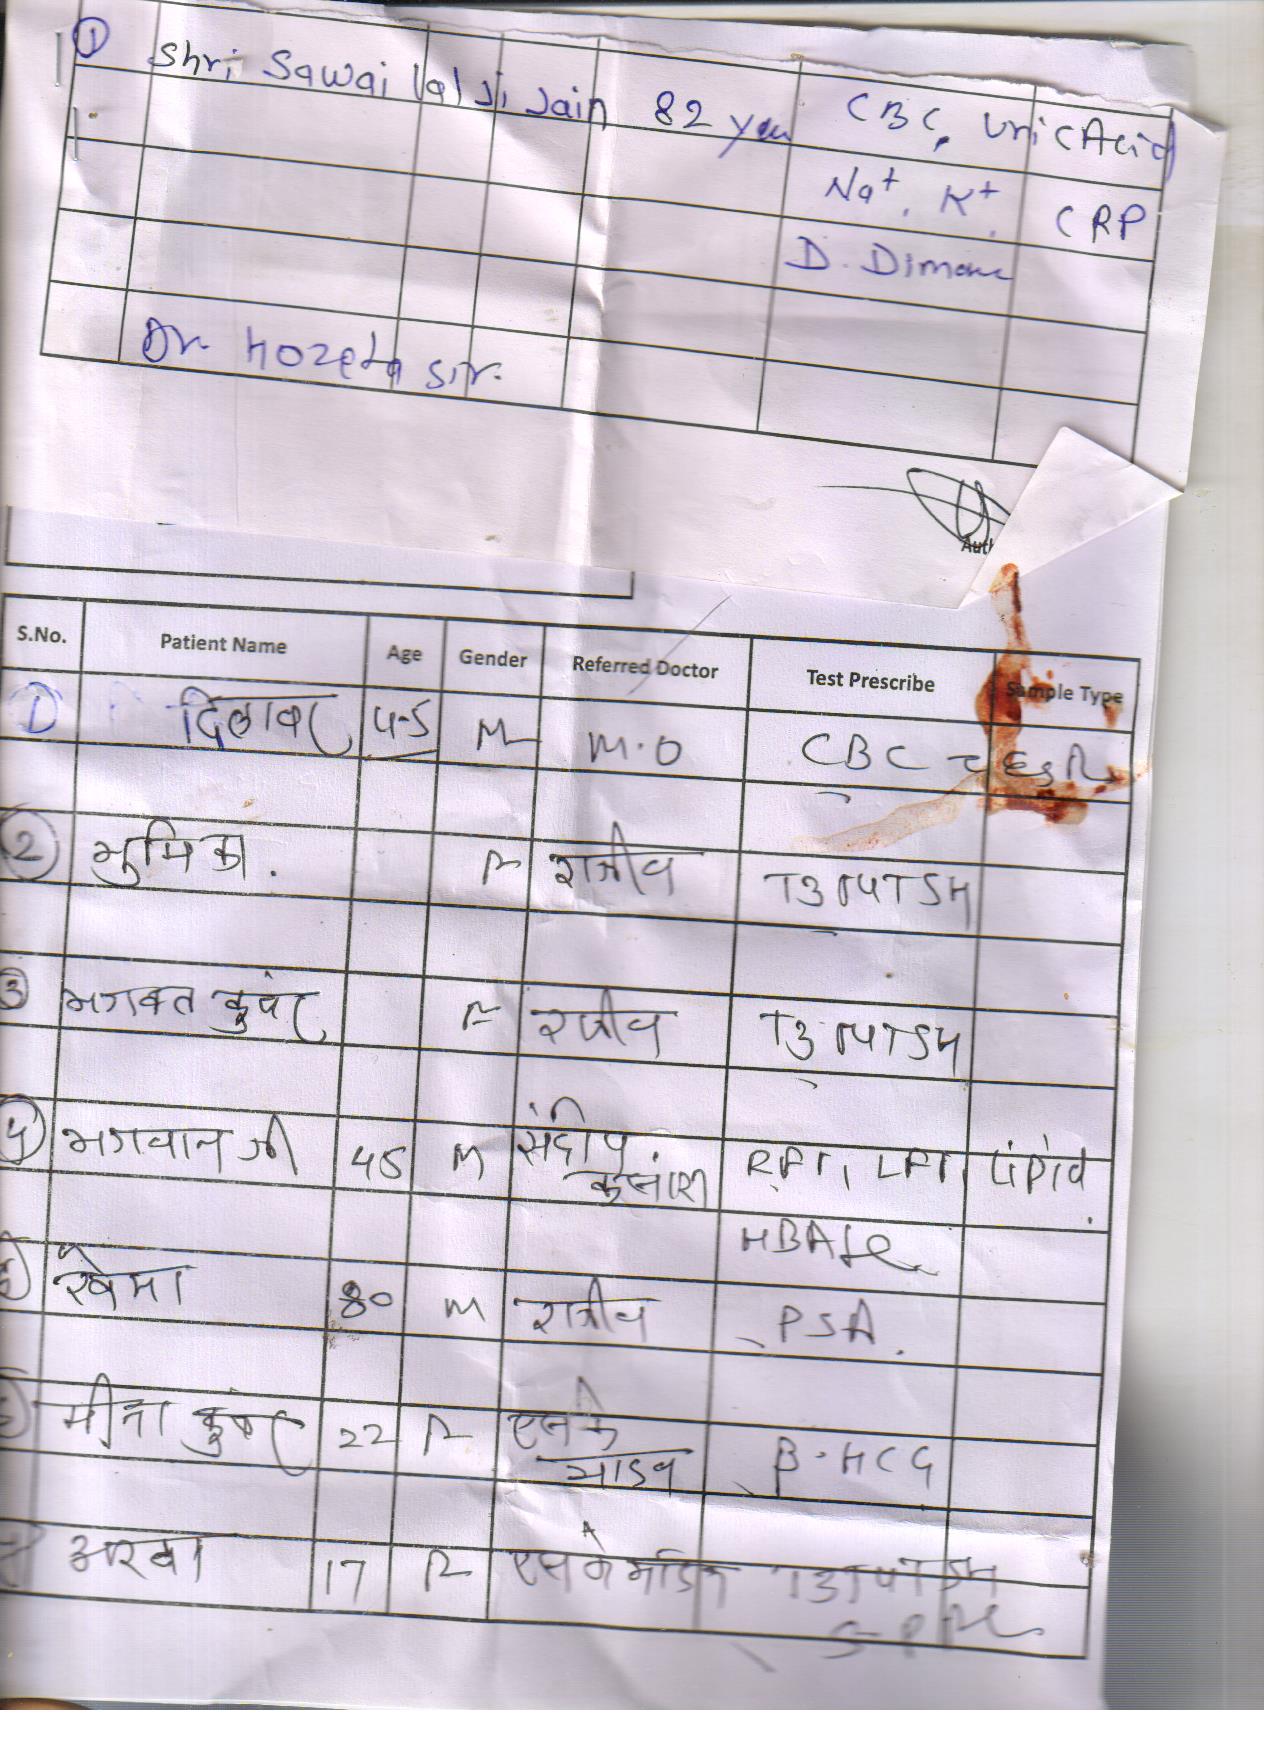 ① Shri Sawai lal Ji Jain 82 year CBC, Uric Acid
Na+, K+, CRP
D. Dimer
Dr. hozefa sir.
Auth
S.No. Patient Name Age Gender Referred Doctor Test Prescribe Sample Type
① दिलावर 45 M M.O CBC ESR
② भुमिका. F राजीव T3T4TSH
③ भगवत कुवंर F राजीव T3T4TSH
④ भगवान जी 45 M संदीप RFT, LFT, Lipid
HBA1c
खेमा 80 M राजीव PSA.
मीना कुंवर 22 F एनके
β-HCG
17 F T3T4TSH